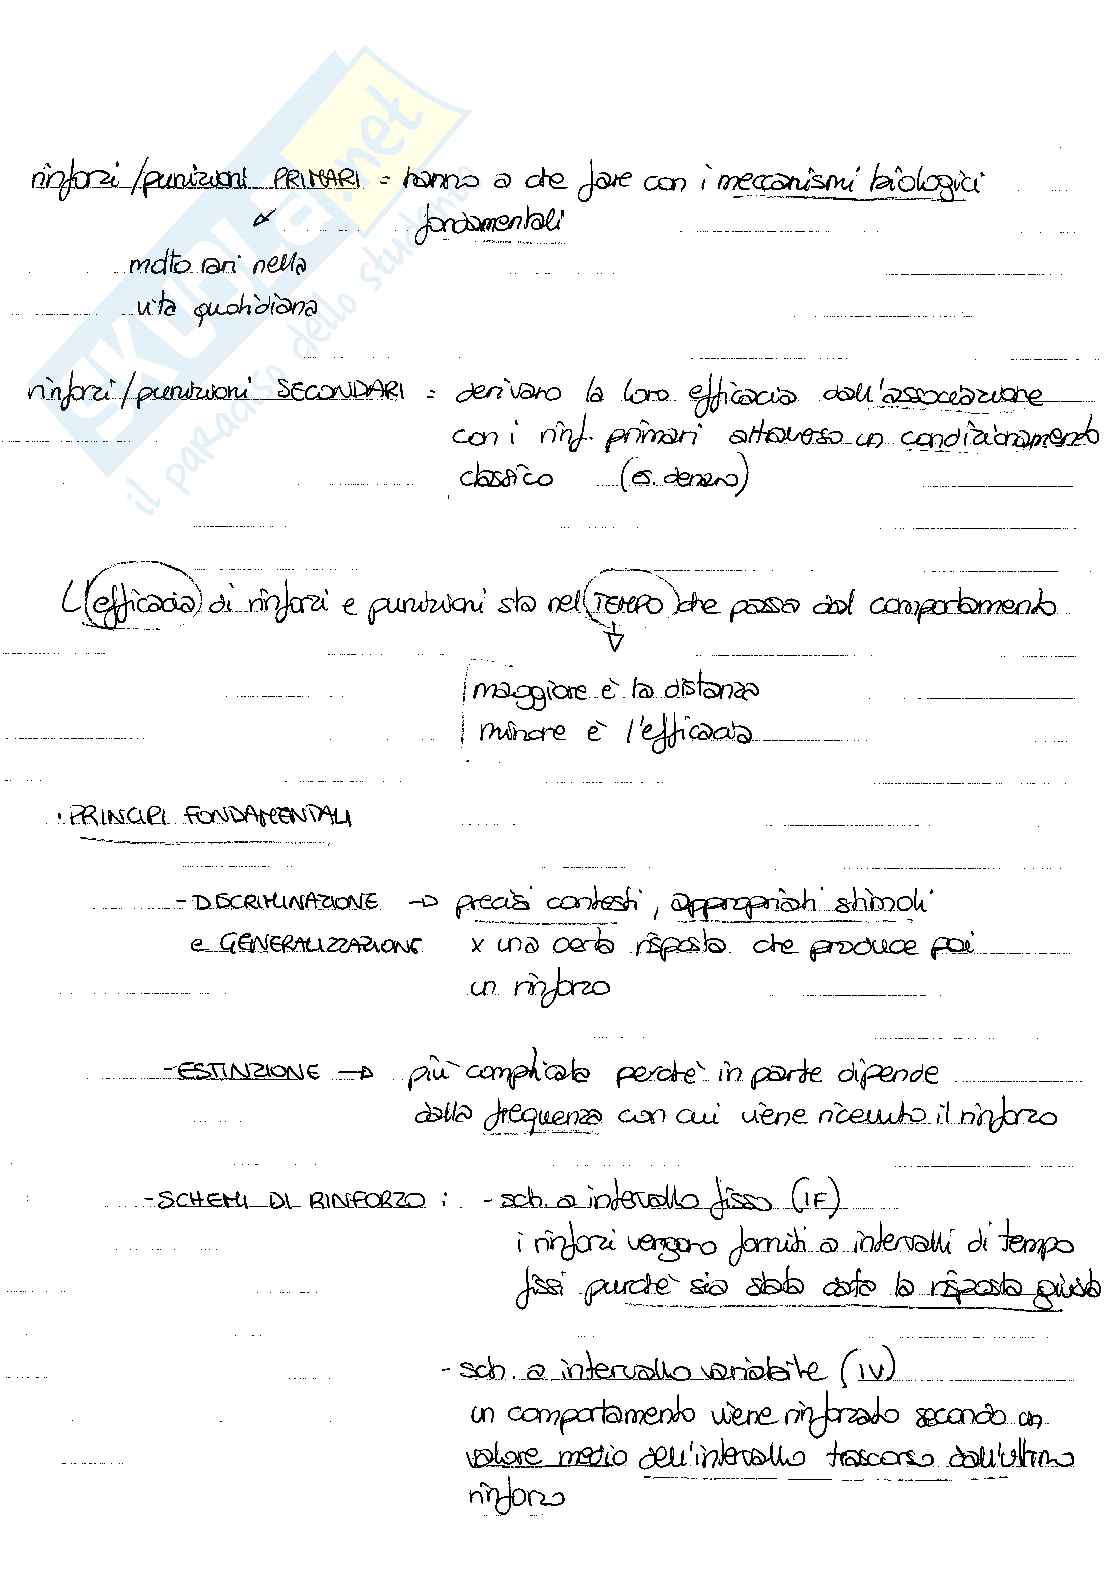 SKUOLA.net
il paradiso dello studente
rinforzi/punizioni PRIMARI = hanno a che fare con i meccanismi biologici
fondamentali
molto rari nella
vita quotidiana
rinforzi/punizioni SECONDARI = derivano la loro efficacia dall'associazione
con i rinf. primari attraverso un condizionamento
classico (es. denaro)
L'efficacia di rinforzi e punizioni sta nel TEMPO che passa dal comportamento
maggiore è la distanza
minore è l'efficacia
· PRINCIPI FONDAMENTALI
- DISCRIMINAZIONE → precisi contesti, appropriati stimoli
e GENERALIZZAZIONE x una certa risposta che produce poi
un rinforzo
- ESTINZIONE → più complicata perchè in parte dipende
dalla frequenza con cui viene ricevuto il rinforzo
- SCHEMI DI RINFORZO : - sch. a intervallo fisso (IF)
i rinforzi vengono forniti a intervalli di tempo
fissi purchè sia stata data la risposta giusta
- sch. a intervallo variabile (IV)
un comportamento viene rinforzato secondo un
valore medio dell'intervallo trascorso dall'ultimo
rinforzo